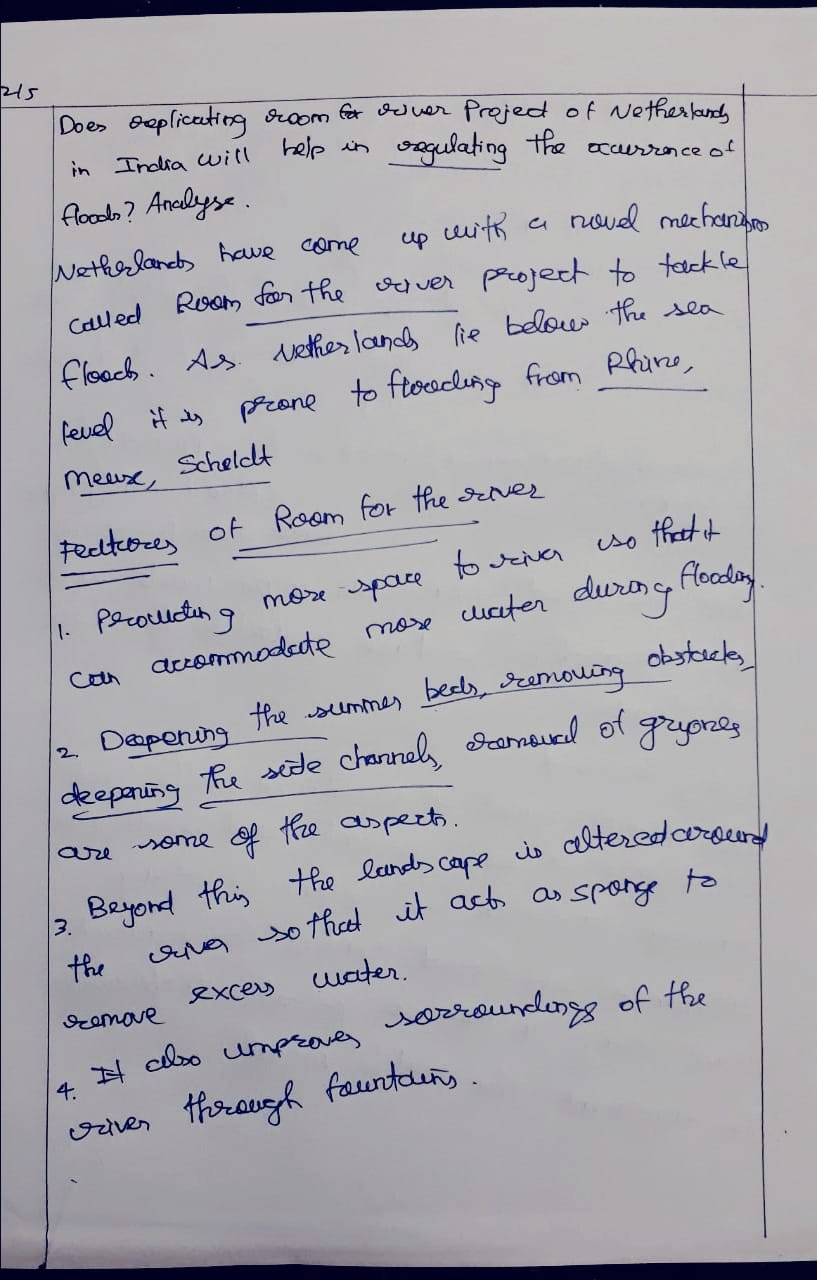 215
Does replicating room for river Project of Netherlands
in India will help in regulating the occurrence of
floods? Analyse.
Netherlands have come up with a novel mechanism
called Room for the river project to tackle
floods. As Netherlands lie below the sea
level it is prone to flooding from Rhine,
Meuse, Scheldt
Features of Room for the river
1. Providing more space to river so that it
can accommodate more water during flooding.
2. Deepening the summer beds, removing obstacles,
deepening the side channels, removal of gryones
are some of the aspects.
3. Beyond this the landscape is altered around
the river so that it acts as sponge to
remove excess water.
4. It also improves sorroundings of the
river through fountains.